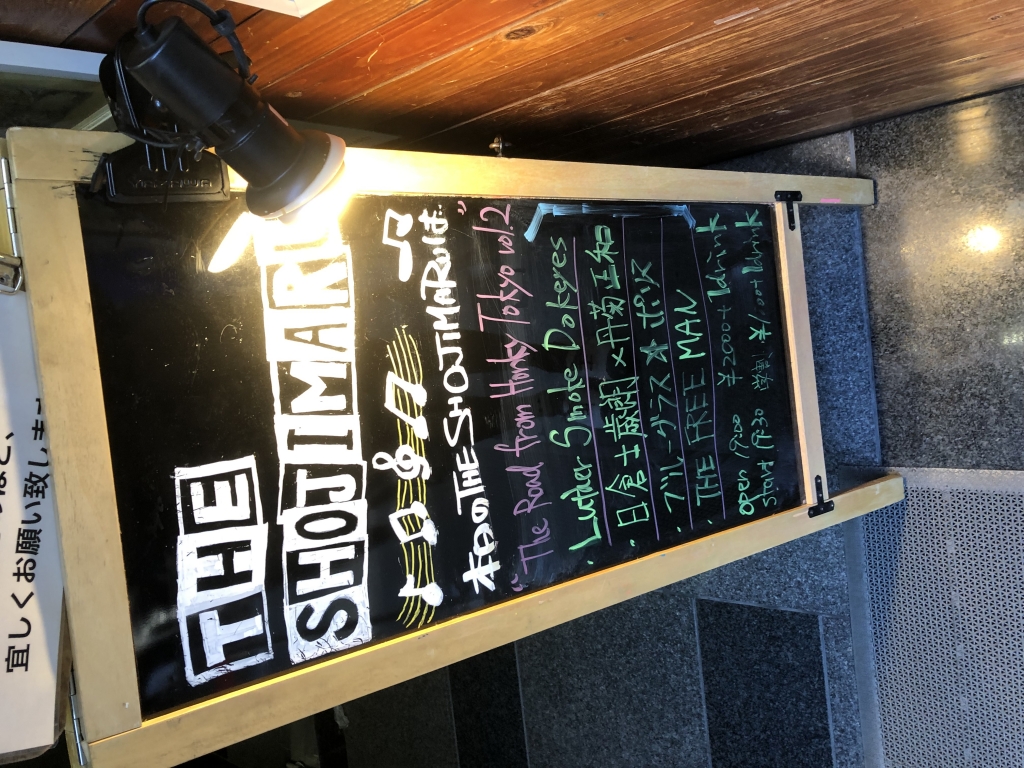 THE
SHOJIMARU
本日のTHE SHOJIMARUは..
"The Road from Honky Tokyo vol.2"
・Luther Smoke Dokeyes
・日倉士歳朗×丹菊正和
・ブルーグラス☆ポリス
・THE FREE MAN
open 19:00 ¥2000+1drink
start 19:30 学割 ¥1000+1drink
宜しくお願い致します